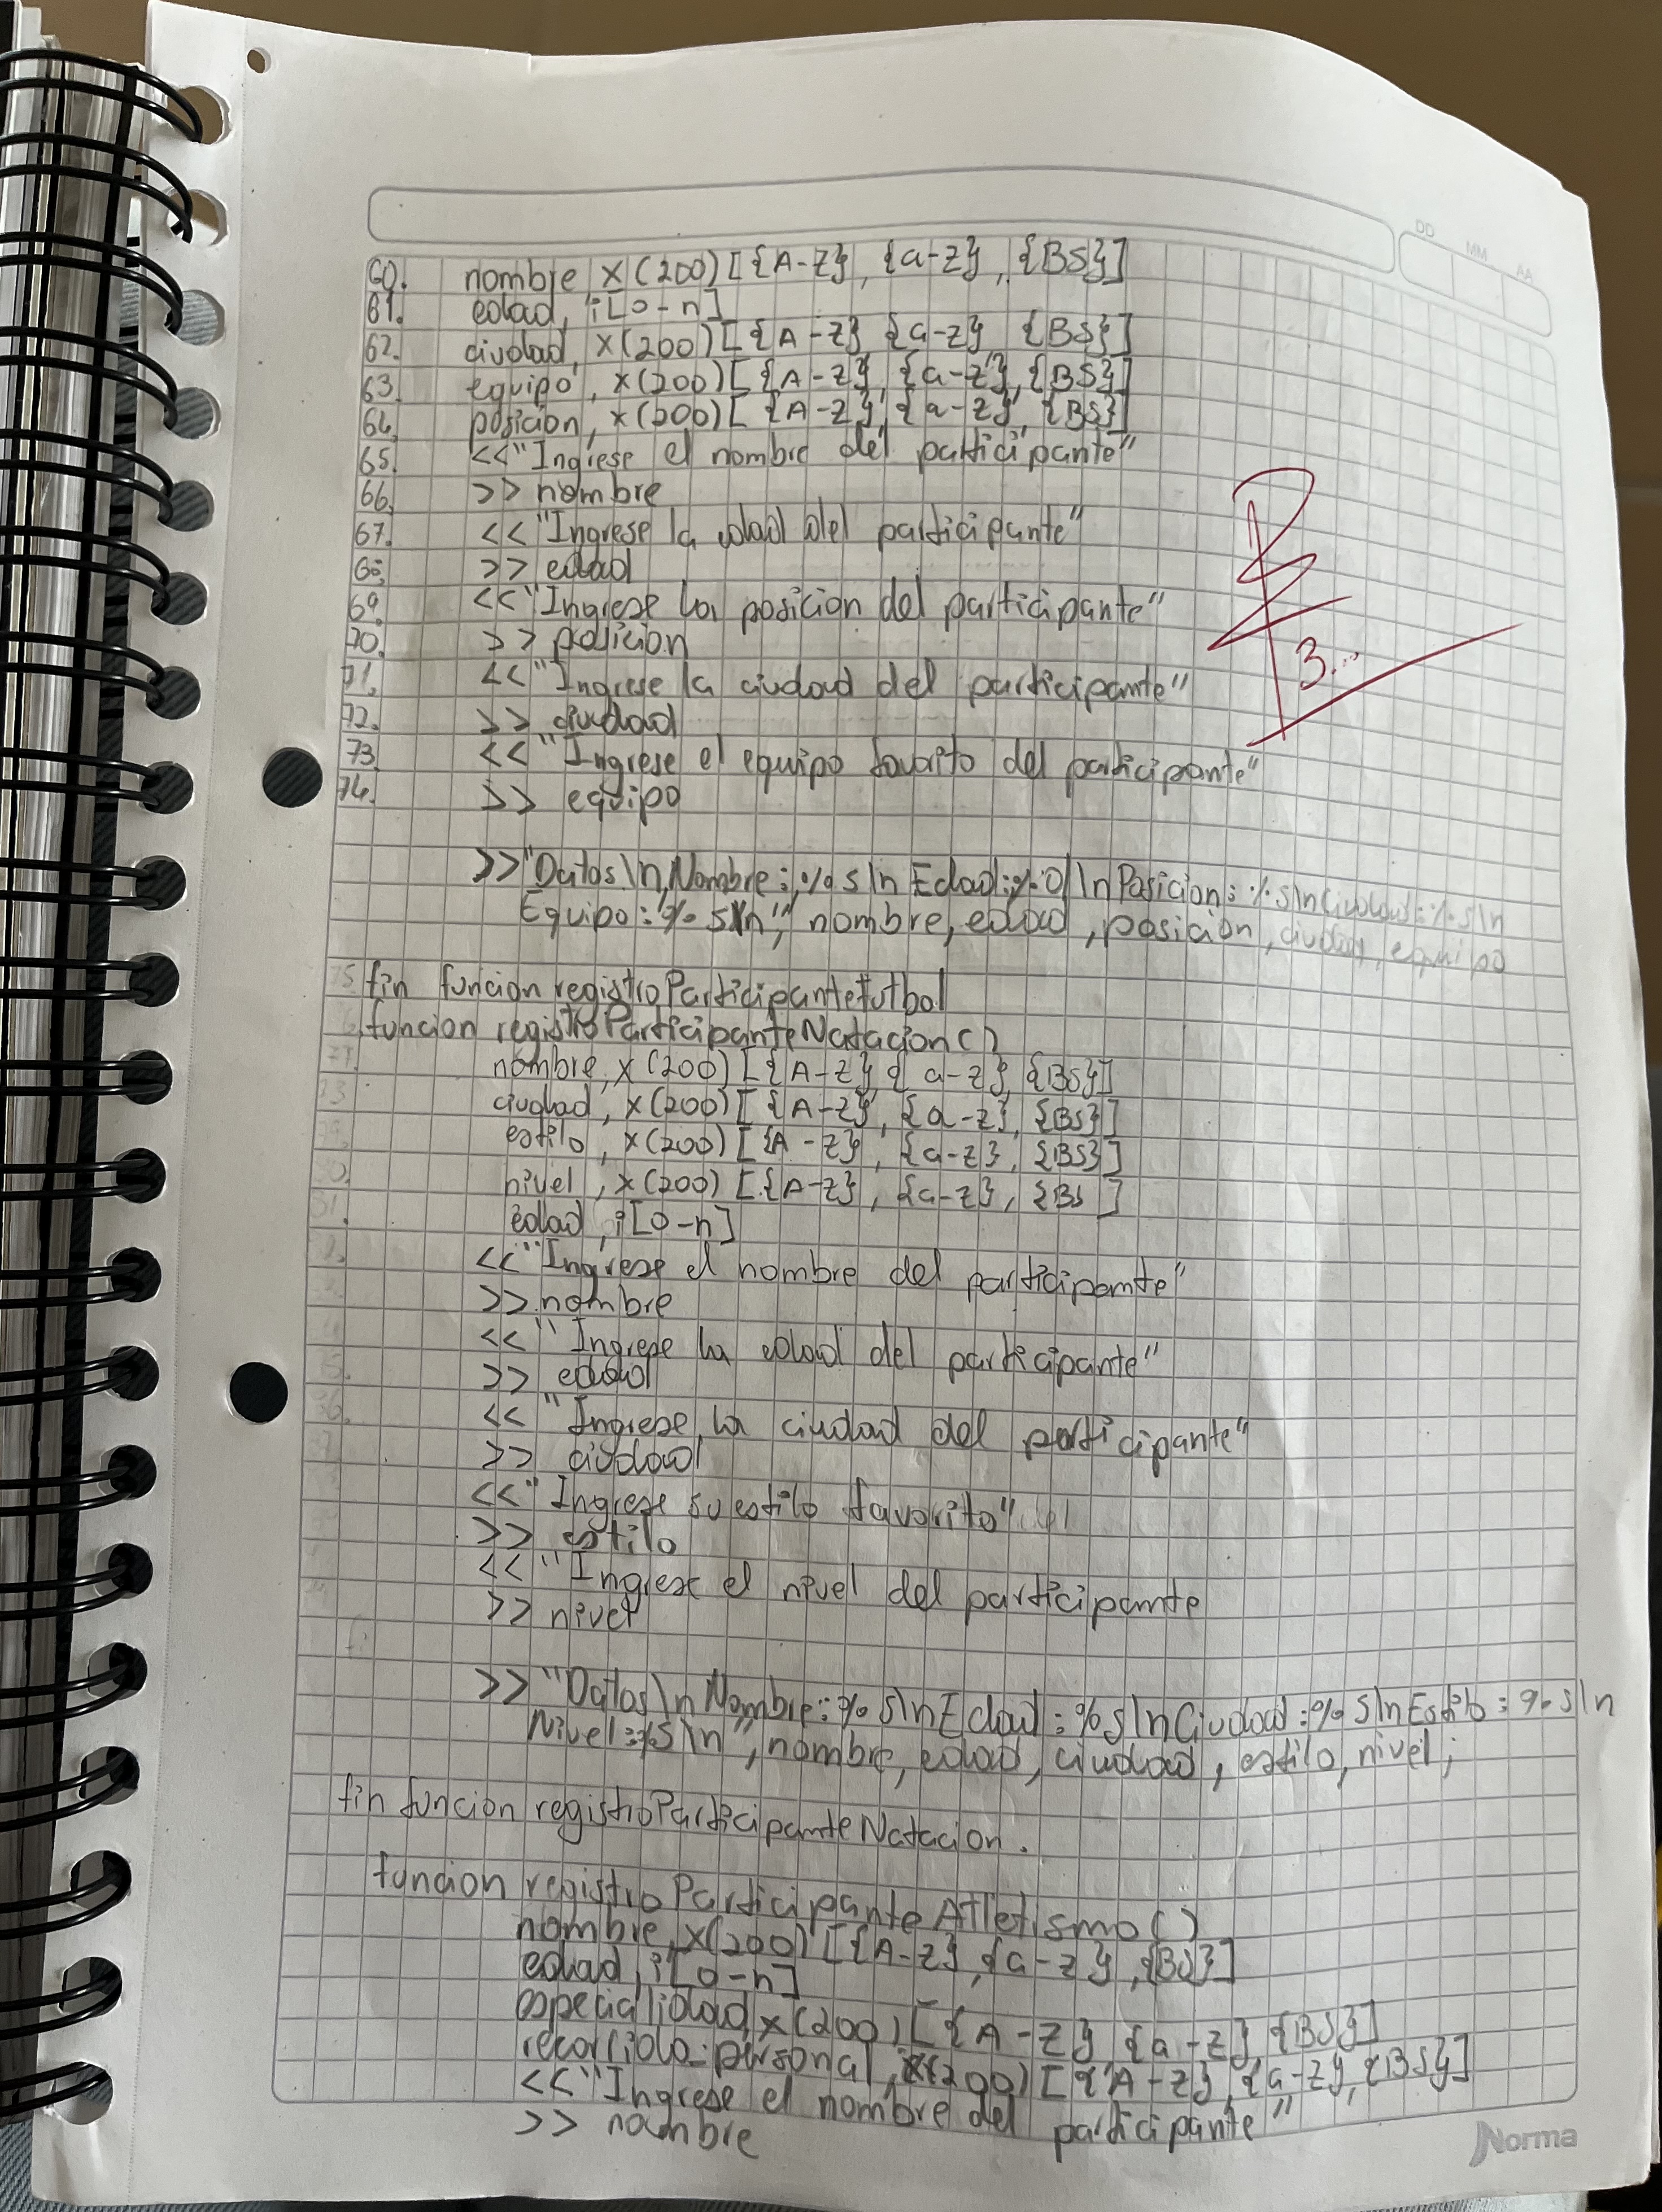 DD MM AA
60. nombre, x(200)[{A-Z}, {a-z}, {BS}]
61. edad, i[0-n]
62. ciudad, x(200)[{A-Z}, {a-z}, {BS}]
63. equipo, x(200)[{A-Z}, {a-z}, {BS}]
64. posicion, x(200)[{A-Z}, {a-z}, {BS}]
65. <<"Ingrese el nombre del participante"
66. >> nombre
67. <<"Ingrese la edad del participante"
68. >> edad
69. <<"Ingrese la posicion del participante"
70. >> posicion
71. <<"Ingrese la ciudad del participante"
72. >> ciudad
73 <<"Ingrese el equipo favorito del participante"
74. >> equipo
3...
>>"Datos\n Nombre: %s\n Edad: %d\n Posicion: %s\n Ciudad: %s\n
Equipo: %s\n", nombre, edad, posicion, ciudad, equipo
75 fin funcion registroParticipanteFutbol
funcion registroParticipanteNatacion()
77. nombre, x(200)[{A-Z}, {a-z}, {BS}]
ciudad, x(200)[{A-Z}, {a-z}, {BS}]
estilo, x(200)[{A-Z}, {a-z}, {BS}]
nivel, x(200)[{A-Z}, {a-z}, {BS ]
edad, i[0-n]
<<"Ingrese el nombre del participante"
>> nombre
<<"Ingrese la edad del participante"
>> edad
<<"Ingrese la ciudad del participante"
>> ciudad
<<"Ingrese su estilo favorito"
>> estilo
<<"Ingrese el nivel del participante
>> nivel
>>"Datos\n Nombre: %s\n Edad: %s\n Ciudad: %s\n Estilo: %s\n
Nivel: %s\n", nombre, edad, ciudad, estilo, nivel;
fin funcion registroParticipanteNatacion.
funcion registroParticipanteAtletismo()
nombre, x(200)[{A-Z}, {a-z}, {BS}]
edad, i[0-n]
especialidad, x(200)[{A-Z}, {a-z}, {BS}]
recorrido_personal, x(200)[{A-Z}, {a-z}, {BS}]
<<"Ingrese el nombre del participante"
>> nombre
Norma